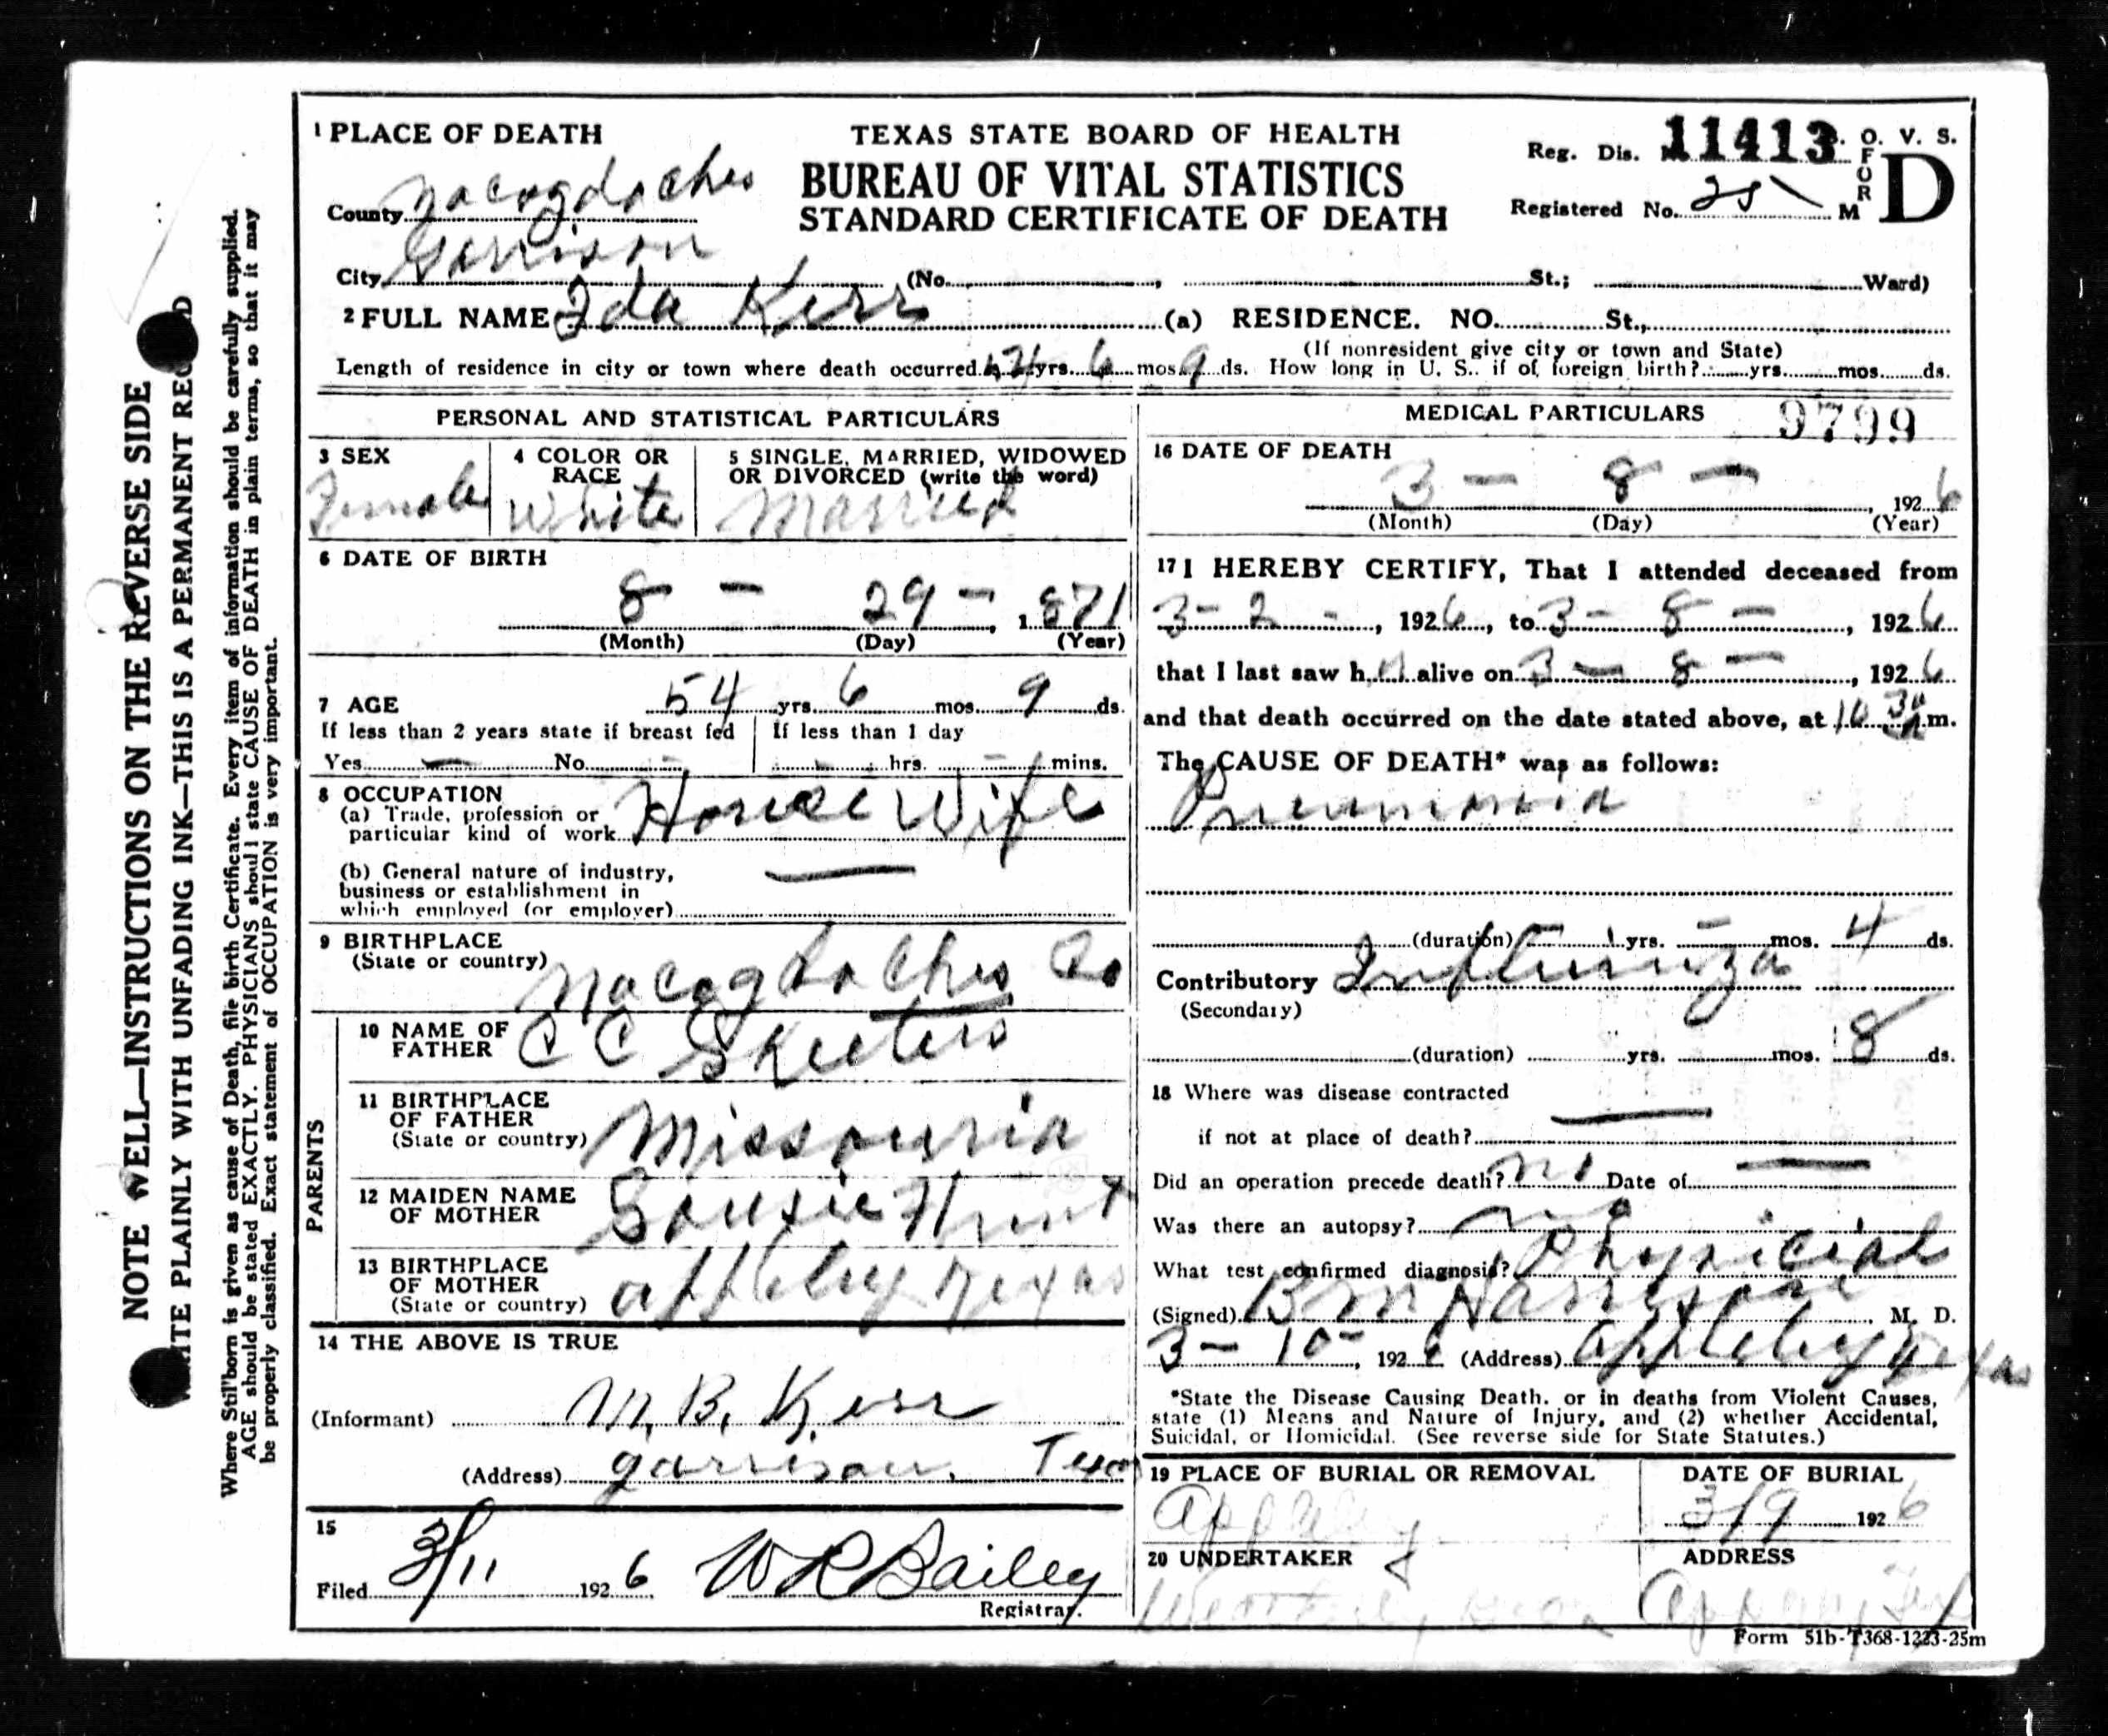 1 PLACE OF DEATH
TEXAS STATE BOARD OF HEALTH
BUREAU OF VITAL STATISTICS
STANDARD CERTIFICATE OF DEATH
Reg. Dis. 11413 . O. V. S.
FORM D
Registered No. 25
County Nacogdoches
City Garrison (No. , St.; Ward)
2 FULL NAME Ida Kerr (a) RESIDENCE. NO. St.,
(If nonresident give city or town and State)
Length of residence in city or town where death occurred yrs. 6 mos. 9 ds. How long in U. S.. if of foreign birth? yrs. mos. ds.
PERSONAL AND STATISTICAL PARTICULARS
3 SEX
Female
4 COLOR OR RACE
White
5 SINGLE, MARRIED, WIDOWED OR DIVORCED (write the word)
Married
6 DATE OF BIRTH
8 - 29 - , 1871
(Month) (Day) (Year)
7 AGE 54 yrs. 6 mos. 9 ds.
If less than 2 years state if breast fed
Yes — No -
If less than 1 day
hrs. - mins.
8 OCCUPATION
(a) Trade, profession or
particular kind of work House Wife
(b) General nature of industry,
business or establishment in
which employed (or employer) —
9 BIRTHPLACE
(State or country) Nacogdoches Co
PARENTS
10 NAME OF FATHER C C Skeeters
11 BIRTHPLACE OF FATHER
(State or country) Missouria
12 MAIDEN NAME OF MOTHER Sousie Hunt
13 BIRTHPLACE OF MOTHER
(State or country) Appleby Texas
14 THE ABOVE IS TRUE
(Informant) M. B. Kerr
(Address) Garrison, Texas
15
Filed 3/11 1926 W R Bailey
Registrar.
MEDICAL PARTICULARS 9799
16 DATE OF DEATH
3 - 8 - , 1926
(Month) (Day) (Year)
17 I HEREBY CERTIFY, That I attended deceased from
3 - 2 - , 1926, to 3 - 8 - , 1926
that I last saw h alive on 3 - 8 - , 1926
and that death occurred on the date stated above, at m.
The CAUSE OF DEATH* was as follows:
Pneumonia
(duration) yrs. - mos. 4 ds.
Contributory Influenza
(Secondary)
(duration) yrs. mos. 8 ds.
18 Where was disease contracted
if not at place of death? —
Did an operation precede death? no Date of —
Was there an autopsy? no
What test confirmed diagnosis? Physicial
(Signed) B M Harrison M. D.
3 - 10 - , 1926 (Address) Appleby Texas
*State the Disease Causing Death, or in deaths from Violent Causes,
state (1) Means and Nature of Injury, and (2) whether Accidental,
Suicidal, or Homicidal. (See reverse side for State Statutes.)
19 PLACE OF BURIAL OR REMOVAL
Appleby
DATE OF BURIAL
3/9 1926
20 UNDERTAKER
ADDRESS
Form 51b-T368-1223-25m
NOTE WELL—INSTRUCTIONS ON THE REVERSE SIDE
WRITE PLAINLY WITH UNFADING INK—THIS IS A PERMANENT RECORD
Where Stil'born is given as cause of Death, file birth Certificate. Every item of information should be carefully supplied.
AGE should be stated EXACTLY. PHYSICIANS should state CAUSE OF DEATH in plain terms, so that it may
be properly classified. Exact statement of OCCUPATION is very important.